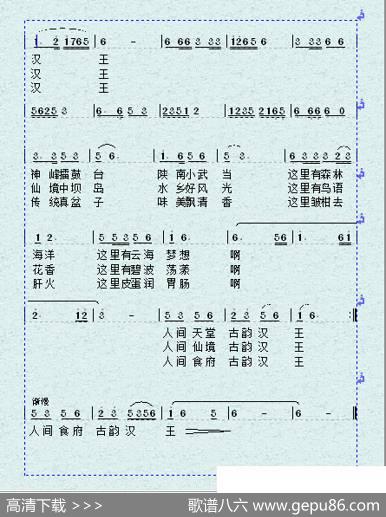 1. 2 1765 6 - 6 66 3 33 12656 3 33 6 6
汉 王
汉 王
汉 王
5625 3 6. 6 5 3 23512 1235 2165 6 66 6 0
神 峰擂鼓 台 陕 南小武 当 这里有森林
仙 境中坝 岛 水 乡好风 光 这里有鸟语
传 统真盆 子 味 美飘清 香 这里皱柑去
海洋 这里有云海 梦想 啊
花香 这里有碧波 荡漾 啊
肝火 这里皮蛋润 胃肠 啊
人间 天堂 古韵 汉 王
人间 仙境 古韵 汉 王
人间 食府 古韵 汉 王
渐慢
5 3 5 6 2 3 5356 1 6 5 6 - 6 -
人间 食府 古韵 汉 王
高清下载 >>> 歌谱八六 www.gepu86.com